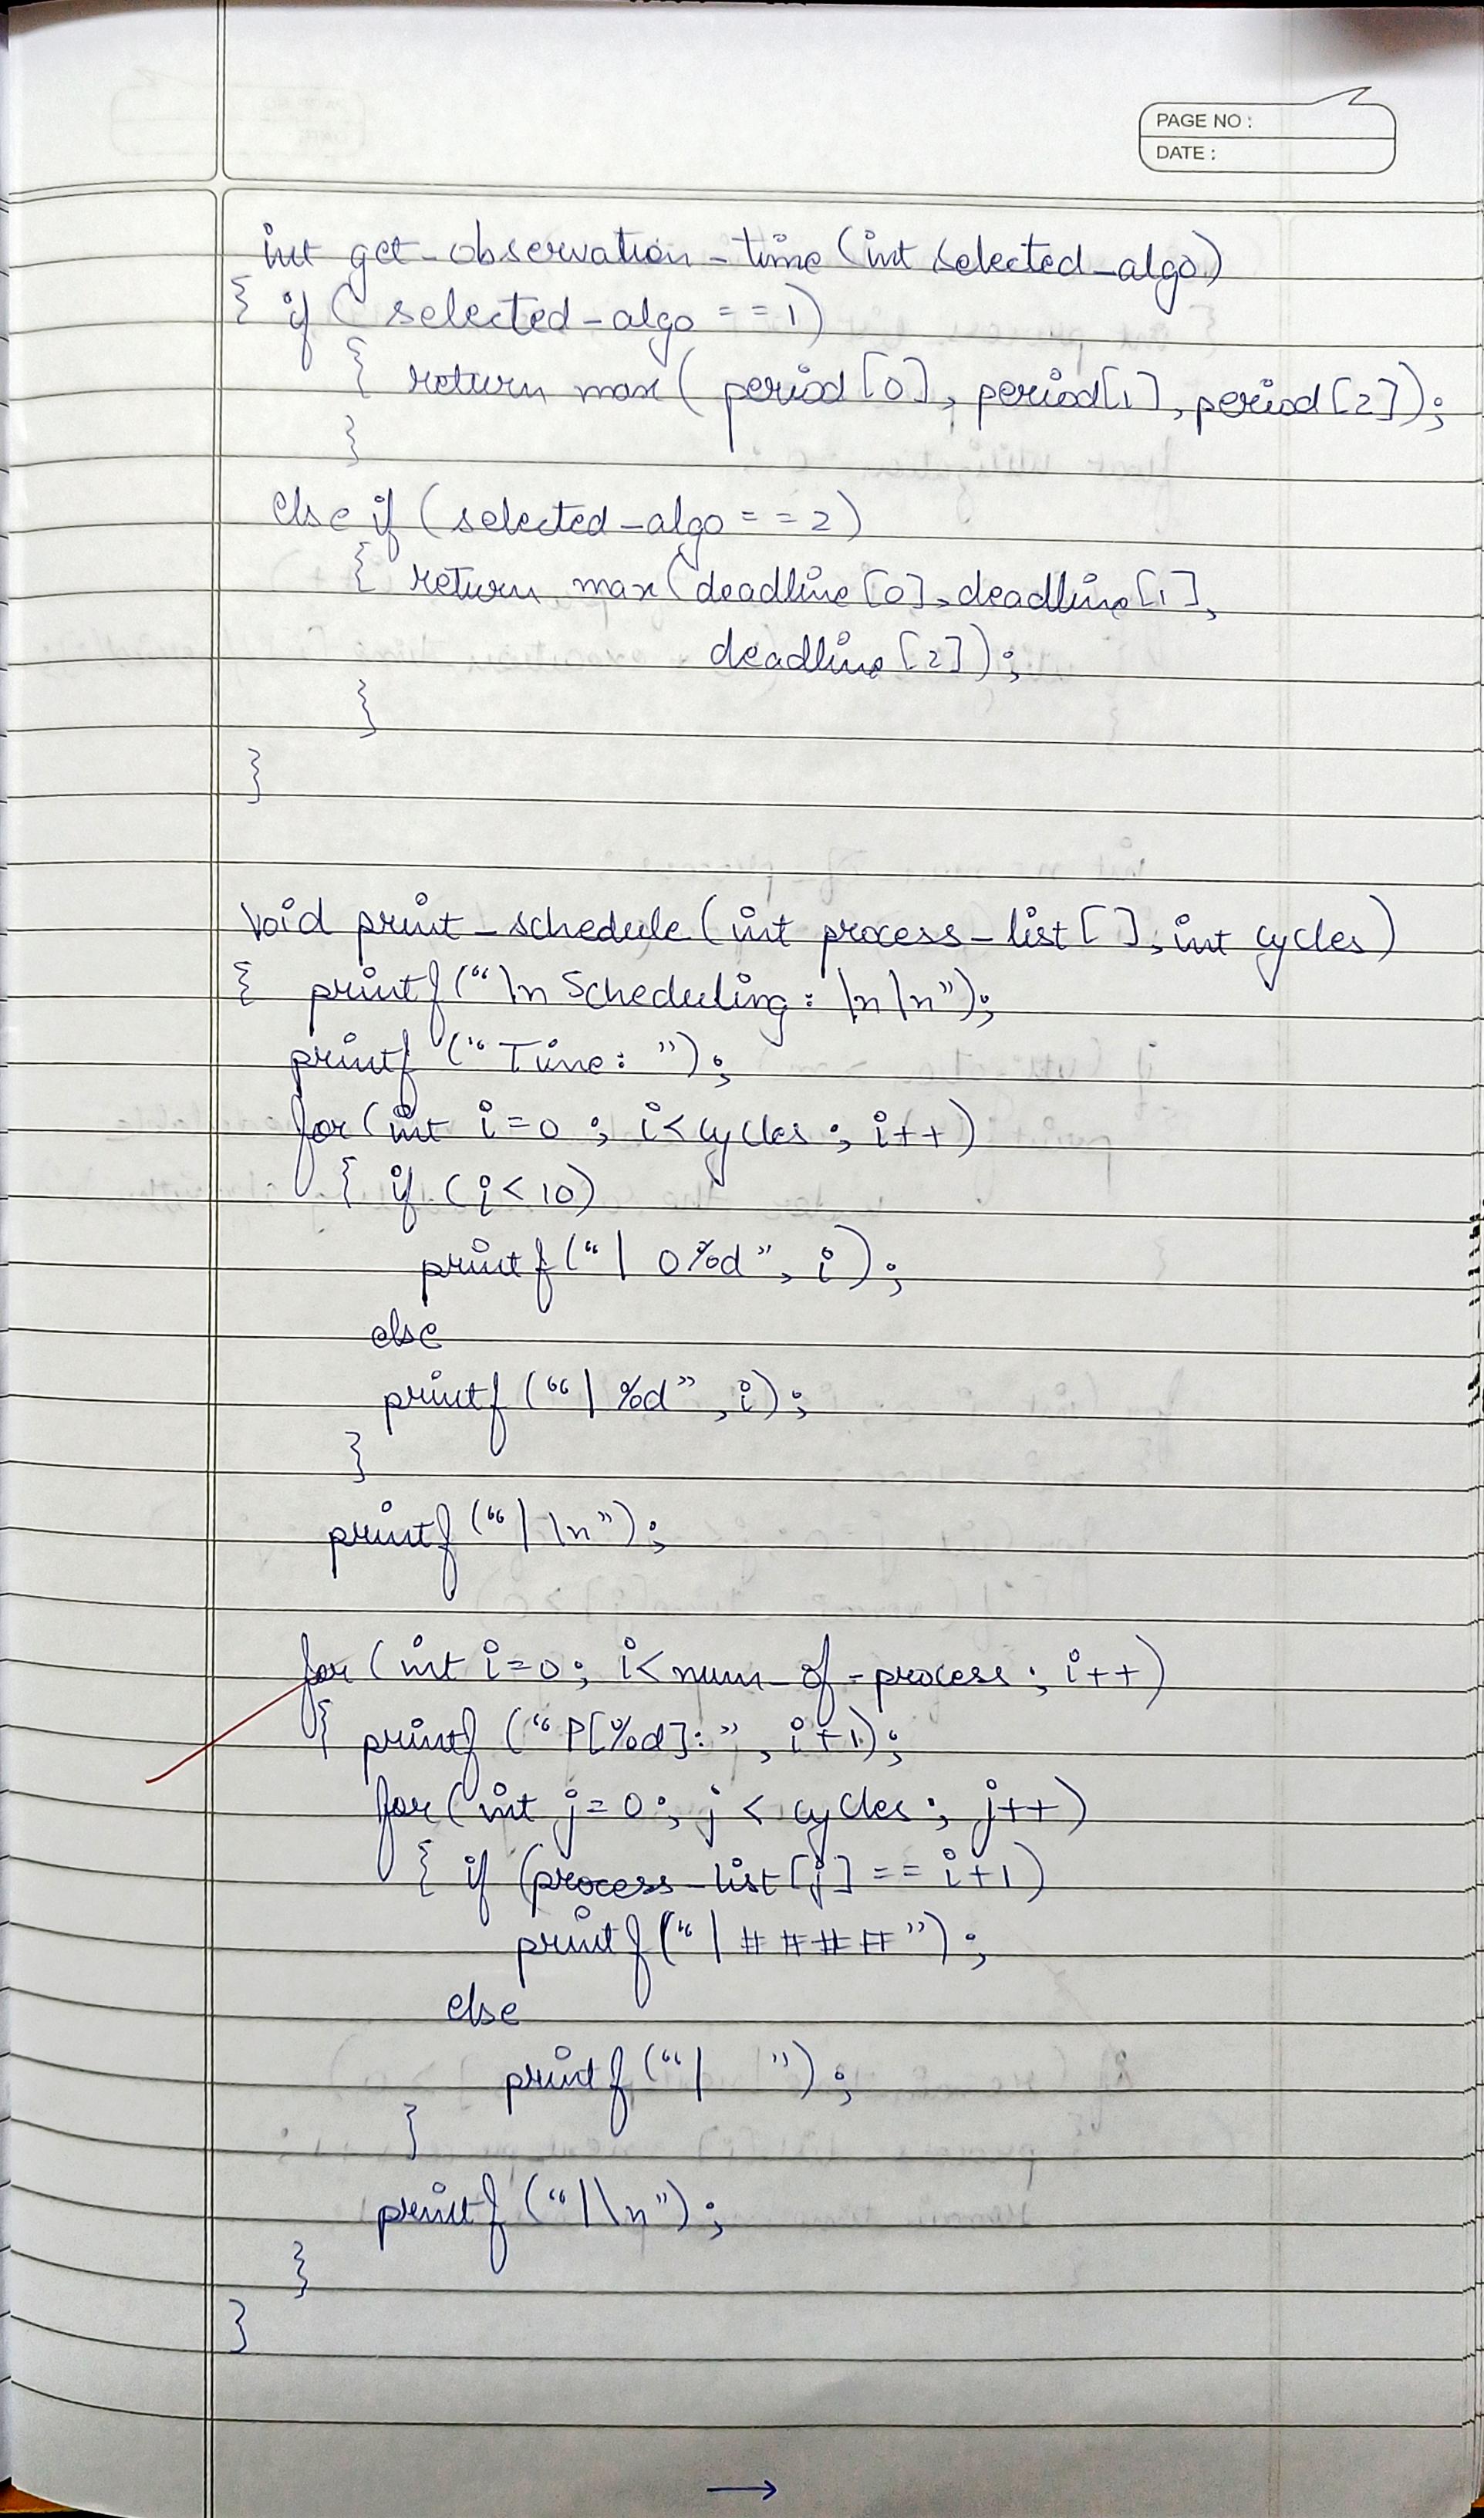 PAGE NO :
DATE :
int get_observation_time (int selected_algo)
{ if ( selected_algo == 1)
{ return max( period [0], period[1], period [2]);
}
else if ( selected_algo == 2)
{ return max(deadline [0], deadline [1],
deadline [2]);
}
}
void print_schedule ( int process_list [ ], int cycles)
{ printf (“\n Scheduling : \n \n”);
printf (“ Time: ”);
for( int i=0 ; i< cycles ; i++)
{ if (i < 10)
printf (“ | 0%d ”, i );
else
printf (“ | %d ”, i);
}
printf (“ | \n”);
for ( int i=0; i< num_of_process ; i++ )
{ printf (“ P[%d]: ”, i+1);
for ( int j=0; j < cycles ; j++)
{ if (process_list [j] == i+1)
printf (“ | ####”);
else
printf (“ |    ”);
}
printf (“ |\n”);
}
}
→